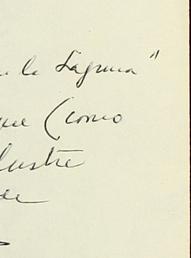 la Laguna"
que (como
lustre
de